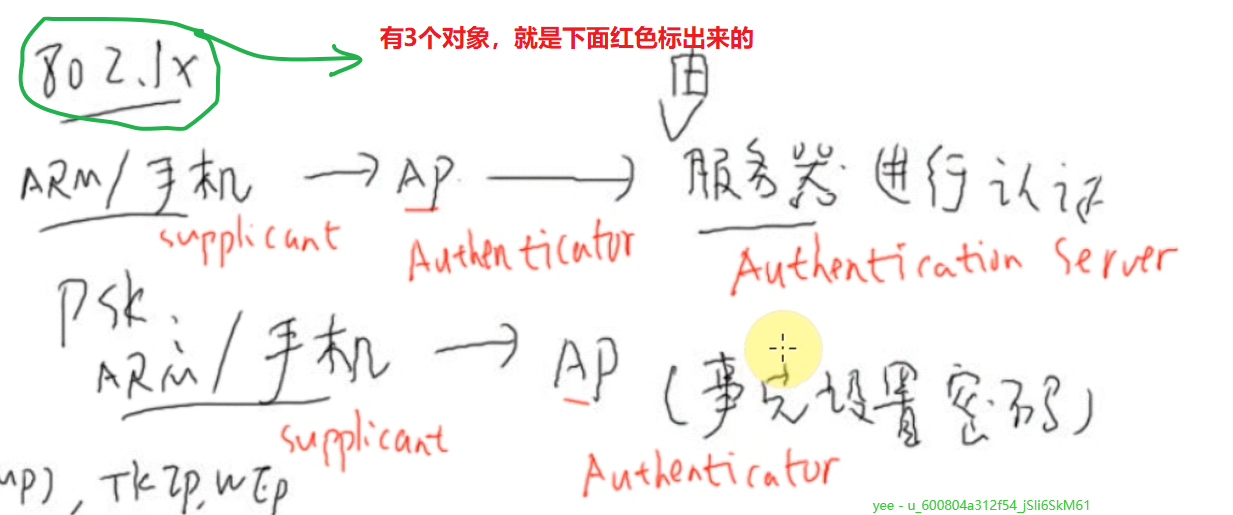 有3个对象，就是下面红色标出来的
802.1x
由
ARM/手机 → AP → 服务器 进行认证
supplicant Authenticator Authentication Server
PSK:
ARM/手机 → AP (事先设置密码)
supplicant Authenticator
mp), TKIP, WEP
yee - u_600804a312f54_jSli6SkM61